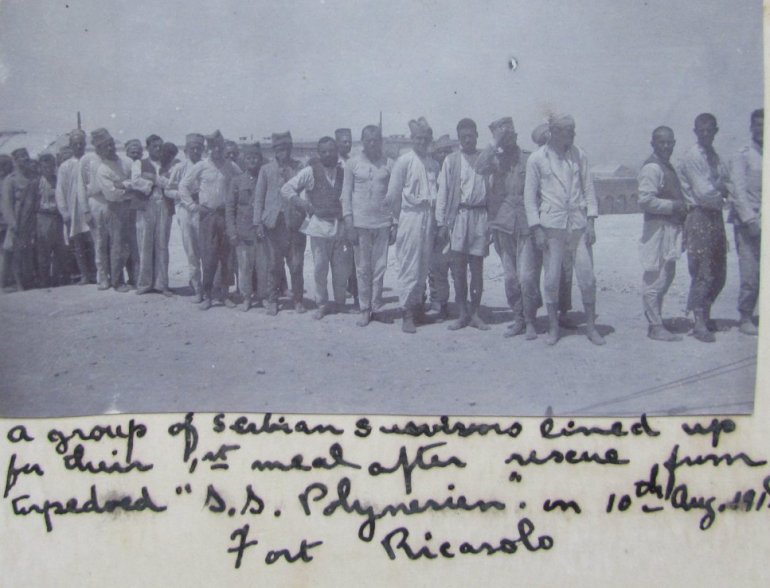 a group of Serbian survivors lined up
for their 1st meal after rescue from
torpedoed "S.S. Polynesien". on 10th Aug. 191
Fort Ricasolo